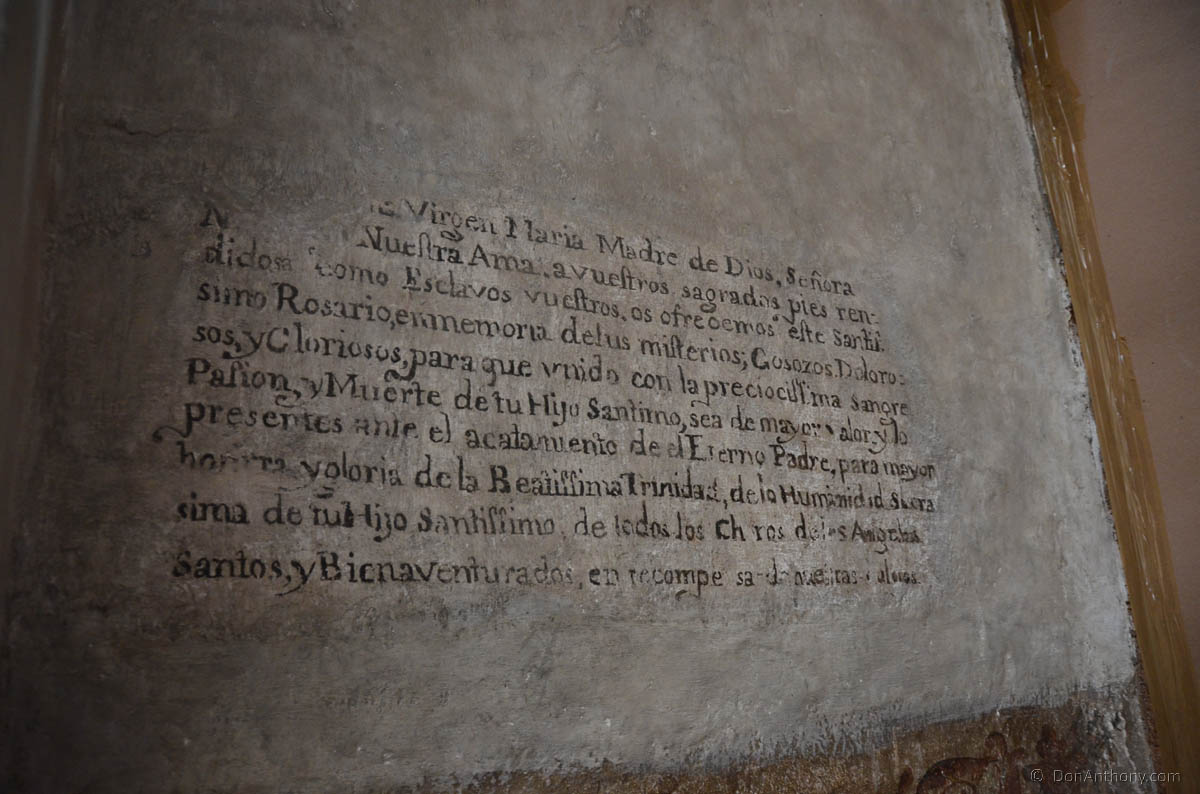 Virgen Maria Madre de Dios, Señora
Nuestra Ama, a vuestros sagrados pies ren=
didosa como Esclavos vuestros, os ofrecemos este Santi-
simo Rosario, en memoria de sus misterios; Gosozos, Doloro=
sos, y Gloriosos, para que vnido con la preciocissima sangre
Pasion, y Muerte de tu Hijo Santimo, sea de mayor valor, y lo
presentes ante el acatamiento de el Eterno Padre, para mayor
honrra, y gloria de la Beatissima Trinidad, de la Humanidad
sima de tu Hijo Santissimo, de todos los de los Angeles
Santos, y Bienaventurados, en
© DonAnthony.com